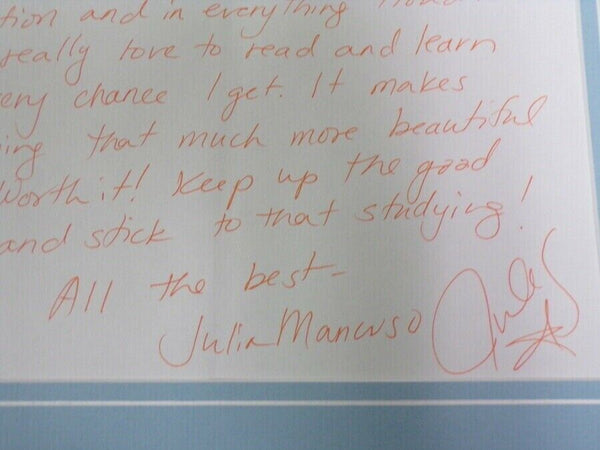 tion and in everything
really love to read and learn
ery chance I get. It makes
ing that much more beautiful
Worth it! Keep up the good
and stick to that studying!
All the best-
Julia Mancuso
Jules